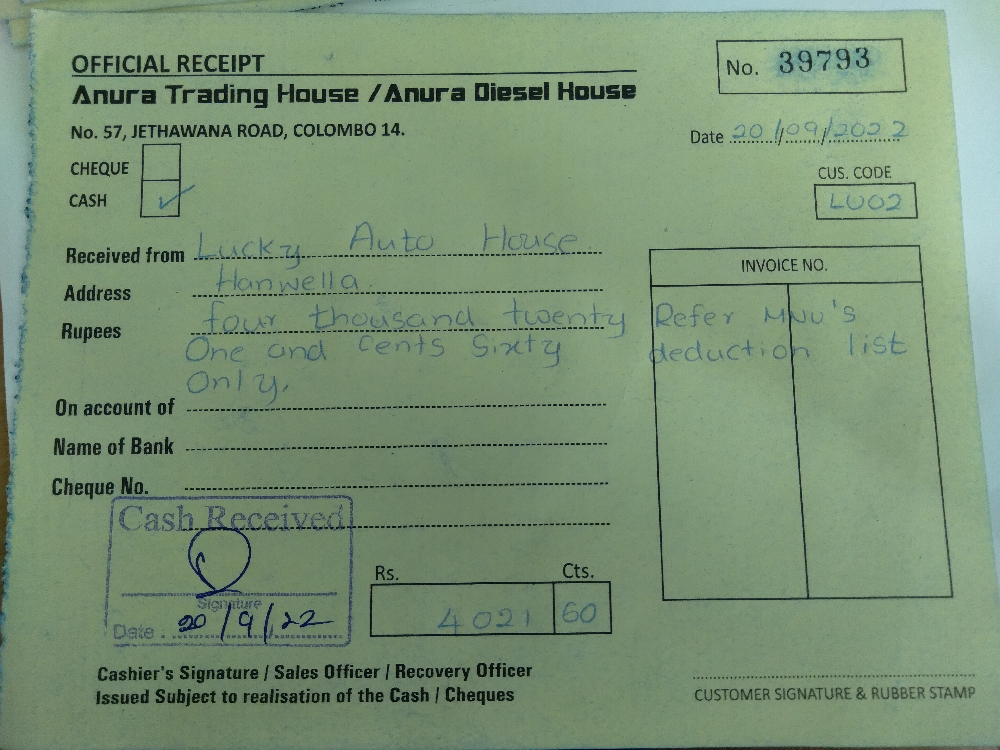 OFFICIAL RECEIPT
No. 39793
Anura Trading House / Anura Diesel House
No. 57, JETHAWANA ROAD, COLOMBO 14.
Date 20/09/2022
CHEQUE
CUS. CODE
CASH ✓
LU02
Received from Lucky Auto House
INVOICE NO.
Address Hanwella.
Rupees four thousand twenty
Refer MNU's
One and Cents Sixty
deduction list
Only.
On account of
Name of Bank
Cheque No.
Cash Received
Signature
Date 20/9/22
Rs. Cts.
4021 60
Cashier's Signature / Sales Officer / Recovery Officer
Issued Subject to realisation of the Cash / Cheques
CUSTOMER SIGNATURE & RUBBER STAMP